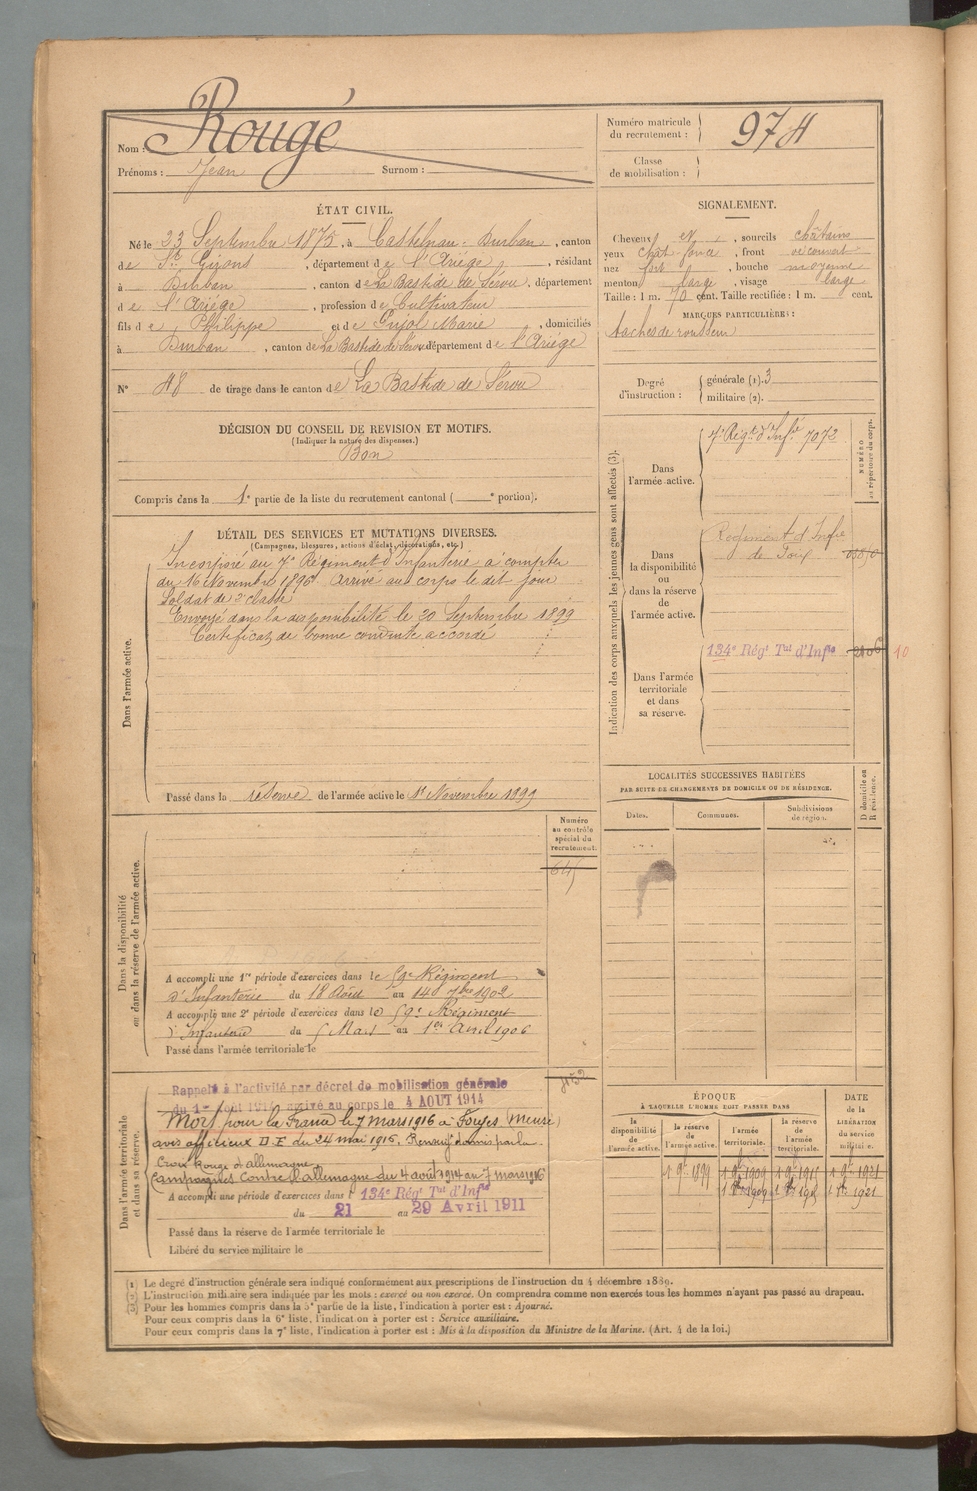 Nom : Rougé
Prénoms : Jean Surnom :
Numéro matricule
du recrutement : 974
Classe
de mobilisation :
ÉTAT CIVIL.
Né le 23 Septembre 1875, à Castelnau-Durban, canton
de St Girons, département de l'Ariège, résidant
à Durban, canton de La Bastide de Sérou, département
de l'Ariège, profession de Cultivateur
fils de Philippe et de Pujol Marie, domiciliés
à Durban, canton de La Bastide de Sérou département de l'Ariège
N° 48 de tirage dans le canton de La Bastide de Sérou
SIGNALEMENT.
Cheveux et, sourcils châtains
yeux chat. foncé, front découvert
nez fort, bouche moyenne
menton large, visage large
Taille : 1 m. 70 cent. Taille rectifiée : 1 m. cent.
MARQUES PARTICULIÈRES :
taches de rousseur
Degré
d'instruction :
générale (1). 3
militaire (2).
DÉCISION DU CONSEIL DE REVISION ET MOTIFS.
(Indiquer la nature des dispenses.)
Bon
Compris dans la 1e partie de la liste du recrutement cantonal ( e portion).
DÉTAIL DES SERVICES ET MUTATIONS DIVERSES.
(Campagnes, blessures, actions d'éclat, décorations, etc.)
Dans l'armée active.
Incorporé au 7e Régiment d'Infanterie à compter
du 16 Novembre 1896. Arrivé au corps le dit jour
Soldat de 2e classe
Envoyé dans la disponibilité le 20 Septembre 1899
Certificat de bonne conduite accordé
Passé dans la réserve de l'armée active le 1er Novembre 1899
Indication des corps auxquels les jeunes gens sont affectés (3).
NUMÉRO
au répertoire du corps.
Dans
l'armée active.
7e Régt d'Infie 7072
Dans
la disponibilité
ou
dans la réserve
de
l'armée active.
Régiment d'Infie
de Foix
Dans l'armée
territoriale
et dans
sa réserve.
134e Régt Tal d'Infie
LOCALITÉS SUCCESSIVES HABITÉES
PAR SUITE DE CHANGEMENTS DE DOMICILE OU DE RÉSIDENCE.
Dates. Communes. Subdivisions
de région.
D domicile ou
R résidence.
Dans la disponibilité
ou dans la réserve de l'armée active.
Numéro
au contrôle
spécial du
recrutement.
A accompli une 1re période d'exercices dans le 59e Régiment
d'Infanterie du 18 Août au 14 7bre 1902
A accompli une 2e période d'exercices dans le 59e Régiment
d'Infanterie du 5 Mars au 1er Avril 1906
Passé dans l'armée territoriale le
Dans l'armée territoriale
et dans sa réserve.
Rappelé à l'activité par décret de mobilisation générale
du 1er Août 1914 arrivé au corps le 4 AOUT 1914
Mort pour la France le 7 mars 1916 à Forges (Meuse)
avis officieux D.E du 24 mai 1916. Renseigt donnés par la
Croix Rouge d'Allemagne
Campagnes Contre l'allemagne du 4 août 1914 au 7 mars 1916
A accompli une période d'exercices dans l 134e Régt Tal d'Infie
du 21 au 29 Avril 1911
Passé dans la réserve de l'armée territoriale le
Libéré du service militaire le
ÉPOQUE
A LAQUELLE L'HOMME DOIT PASSER DANS
la
disponibilité
de
l'armée active.
la réserve
de
l'armée active.
l'armée
territoriale.
la réserve
de
l'armée
territoriale.
DATE
de la
LIBÉRATION
du service
militaire.
1 9bre 1899 1 9bre 1909 1 9bre 1915 1 9bre 1921
(1) Le degré d'instruction générale sera indiqué conformément aux prescriptions de l'instruction du 4 décembre 1889.
(2) L'instruction militaire sera indiquée par les mots : exercé ou non exercé. On comprendra comme non exercés tous les hommes n'ayant pas passé au drapeau.
(3) Pour les hommes compris dans la 5e partie de la liste, l'indication à porter est : Ajourné.
Pour ceux compris dans la 6e liste, l'indication à porter est : Service auxiliaire.
Pour ceux compris dans la 7e liste, l'indication à porter est : Mis à la disposition du Ministre de la Marine. (Art. 4 de la loi.)